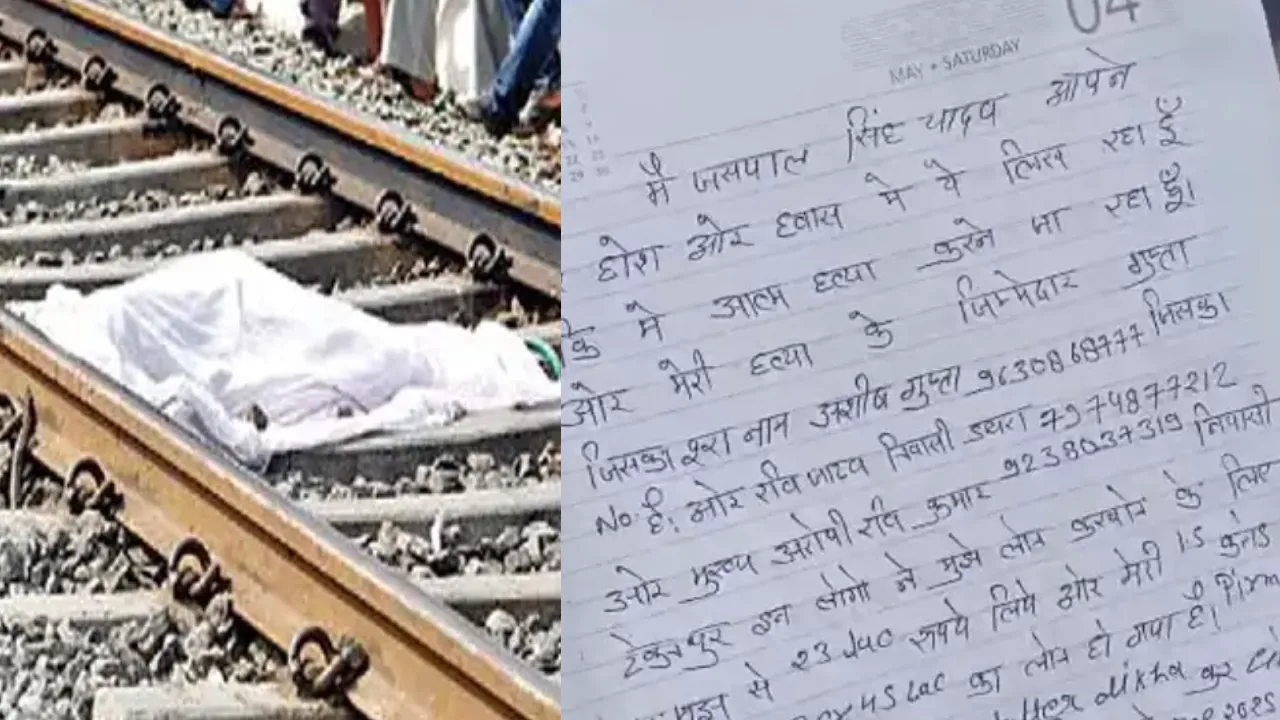 04
MAY • SATURDAY
मै जसपाल सिंह यादव आपने
होश ओर हवास मे ये लिख रहा हूँ
के मे आत्म हत्या करने जा रहा हूँ।
ओर मेरी हत्या के जिम्मेदार गुप्ता
जिसका पूरा नाम अशीष गुप्ता 9630868777 जिसका
No. है। ओर रवि जाटव निवासी डबरा 7974877212
ओर मुख्य अरोपी रवि कुमार 9238037319 निवासी
टेकनपुर इन लोगो ने मुझे लोन करवाने के लिए
मुझ से 23 Lac रूपये लिये ओर मेरी 1.5 करोड
45 Lac का लोन हो गया है।
कर
2025